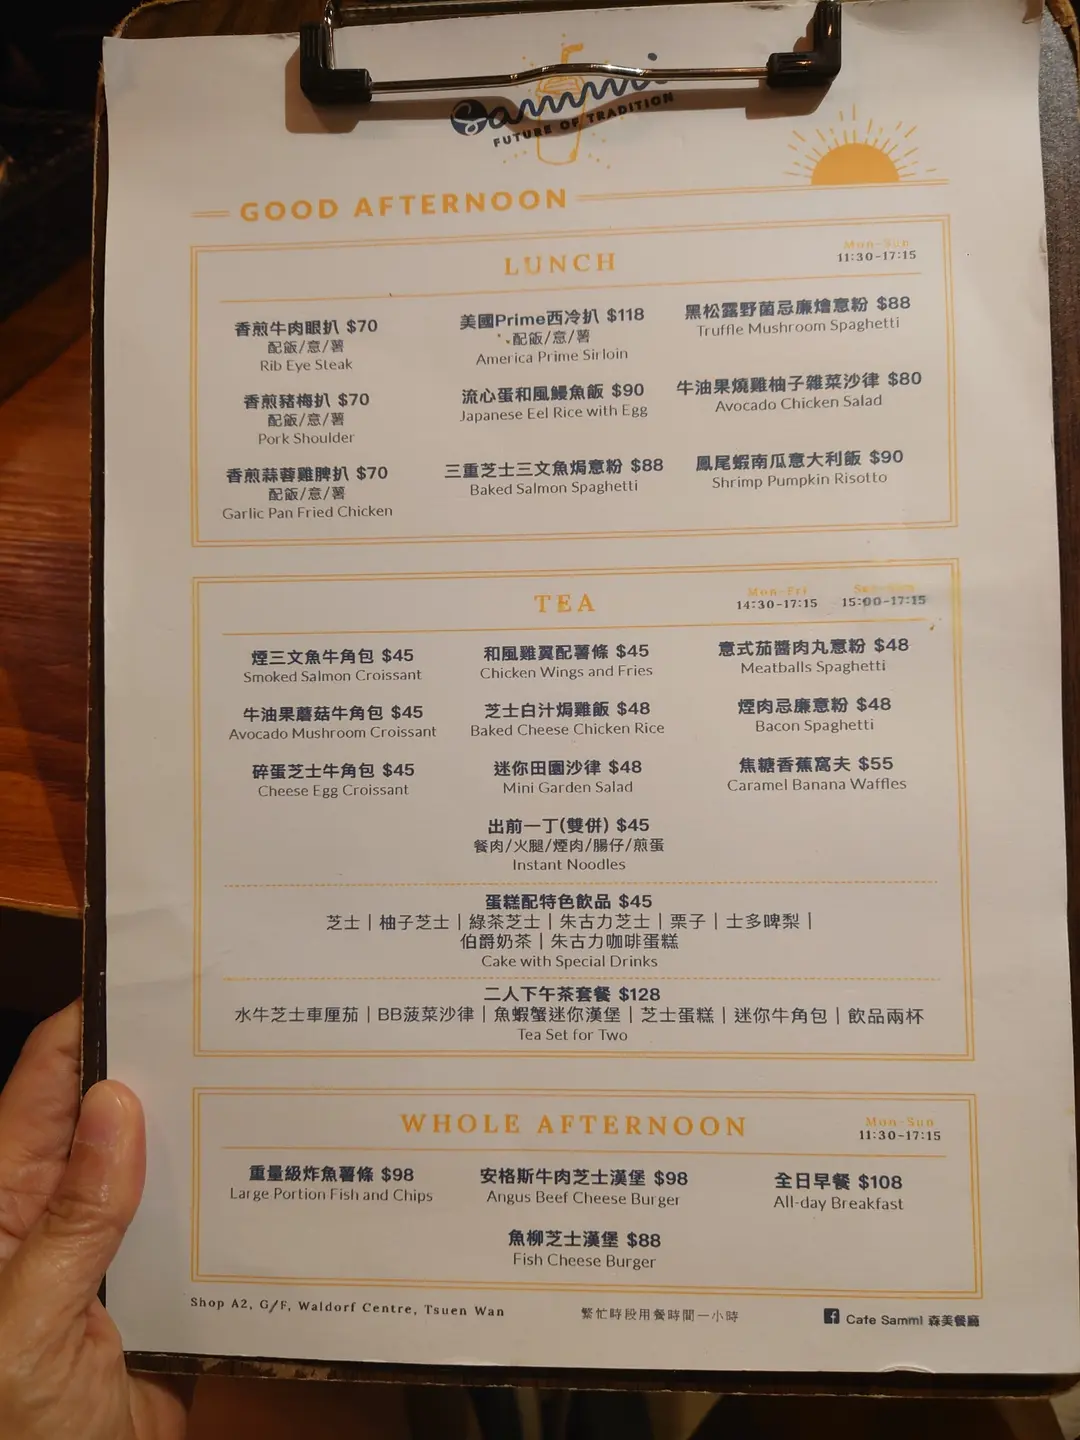 Sammi
FUTURE OF TRADITION
GOOD AFTERNOON
LUNCH
Mon-Sun
11:30-17:15
香煎牛肉眼扒 $70
配飯/意/薯
Rib Eye Steak
香煎豬梅扒 $70
配飯/意/薯
Pork Shoulder
香煎蒜蓉雞脾扒 $70
配飯/意/薯
Garlic Pan Fried Chicken
美國Prime西冷扒 $118
配飯/意/薯
America Prime Sirloin
流心蛋和風鰻魚飯 $90
Japanese Eel Rice with Egg
三重芝士三文魚焗意粉 $88
Baked Salmon Spaghetti
黑松露野菌忌廉燴意粉 $88
Truffle Mushroom Spaghetti
牛油果燒雞柚子雜菜沙律 $80
Avocado Chicken Salad
鳳尾蝦南瓜意大利飯 $90
Shrimp Pumpkin Risotto
TEA
Mon-Fri
14:30-17:15
15:00-17:15
煙三文魚牛角包 $45
Smoked Salmon Croissant
牛油果蘑菇牛角包 $45
Avocado Mushroom Croissant
碎蛋芝士牛角包 $45
Cheese Egg Croissant
和風雞翼配薯條 $45
Chicken Wings and Fries
芝士白汁焗雞飯 $48
Baked Cheese Chicken Rice
迷你田園沙律 $48
Mini Garden Salad
意式茄醬肉丸意粉 $48
Meatballs Spaghetti
煙肉忌廉意粉 $48
Bacon Spaghetti
焦糖香蕉窩夫 $55
Caramel Banana Waffles
出前一丁(雙併) $45
餐肉/火腿/煙肉/腸仔/煎蛋
Instant Noodles
蛋糕配特色飲品 $45
芝士｜柚子芝士｜綠茶芝士｜朱古力芝士｜栗子｜士多啤梨｜
伯爵奶茶｜朱古力咖啡蛋糕
Cake with Special Drinks
二人下午茶套餐 $128
水牛芝士車厘茄｜BB菠菜沙律｜魚蝦蟹迷你漢堡｜芝士蛋糕｜迷你牛角包｜飲品兩杯
Tea Set for Two
WHOLE AFTERNOON
Mon-Sun
11:30-17:15
重量級炸魚薯條 $98
Large Portion Fish and Chips
安格斯牛肉芝士漢堡 $98
Angus Beef Cheese Burger
全日早餐 $108
All-day Breakfast
魚柳芝士漢堡 $88
Fish Cheese Burger
Shop A2, G/F, Waldorf Centre, Tsuen Wan
繁忙時段用餐時間一小時
Cafe SammI 森美餐廳